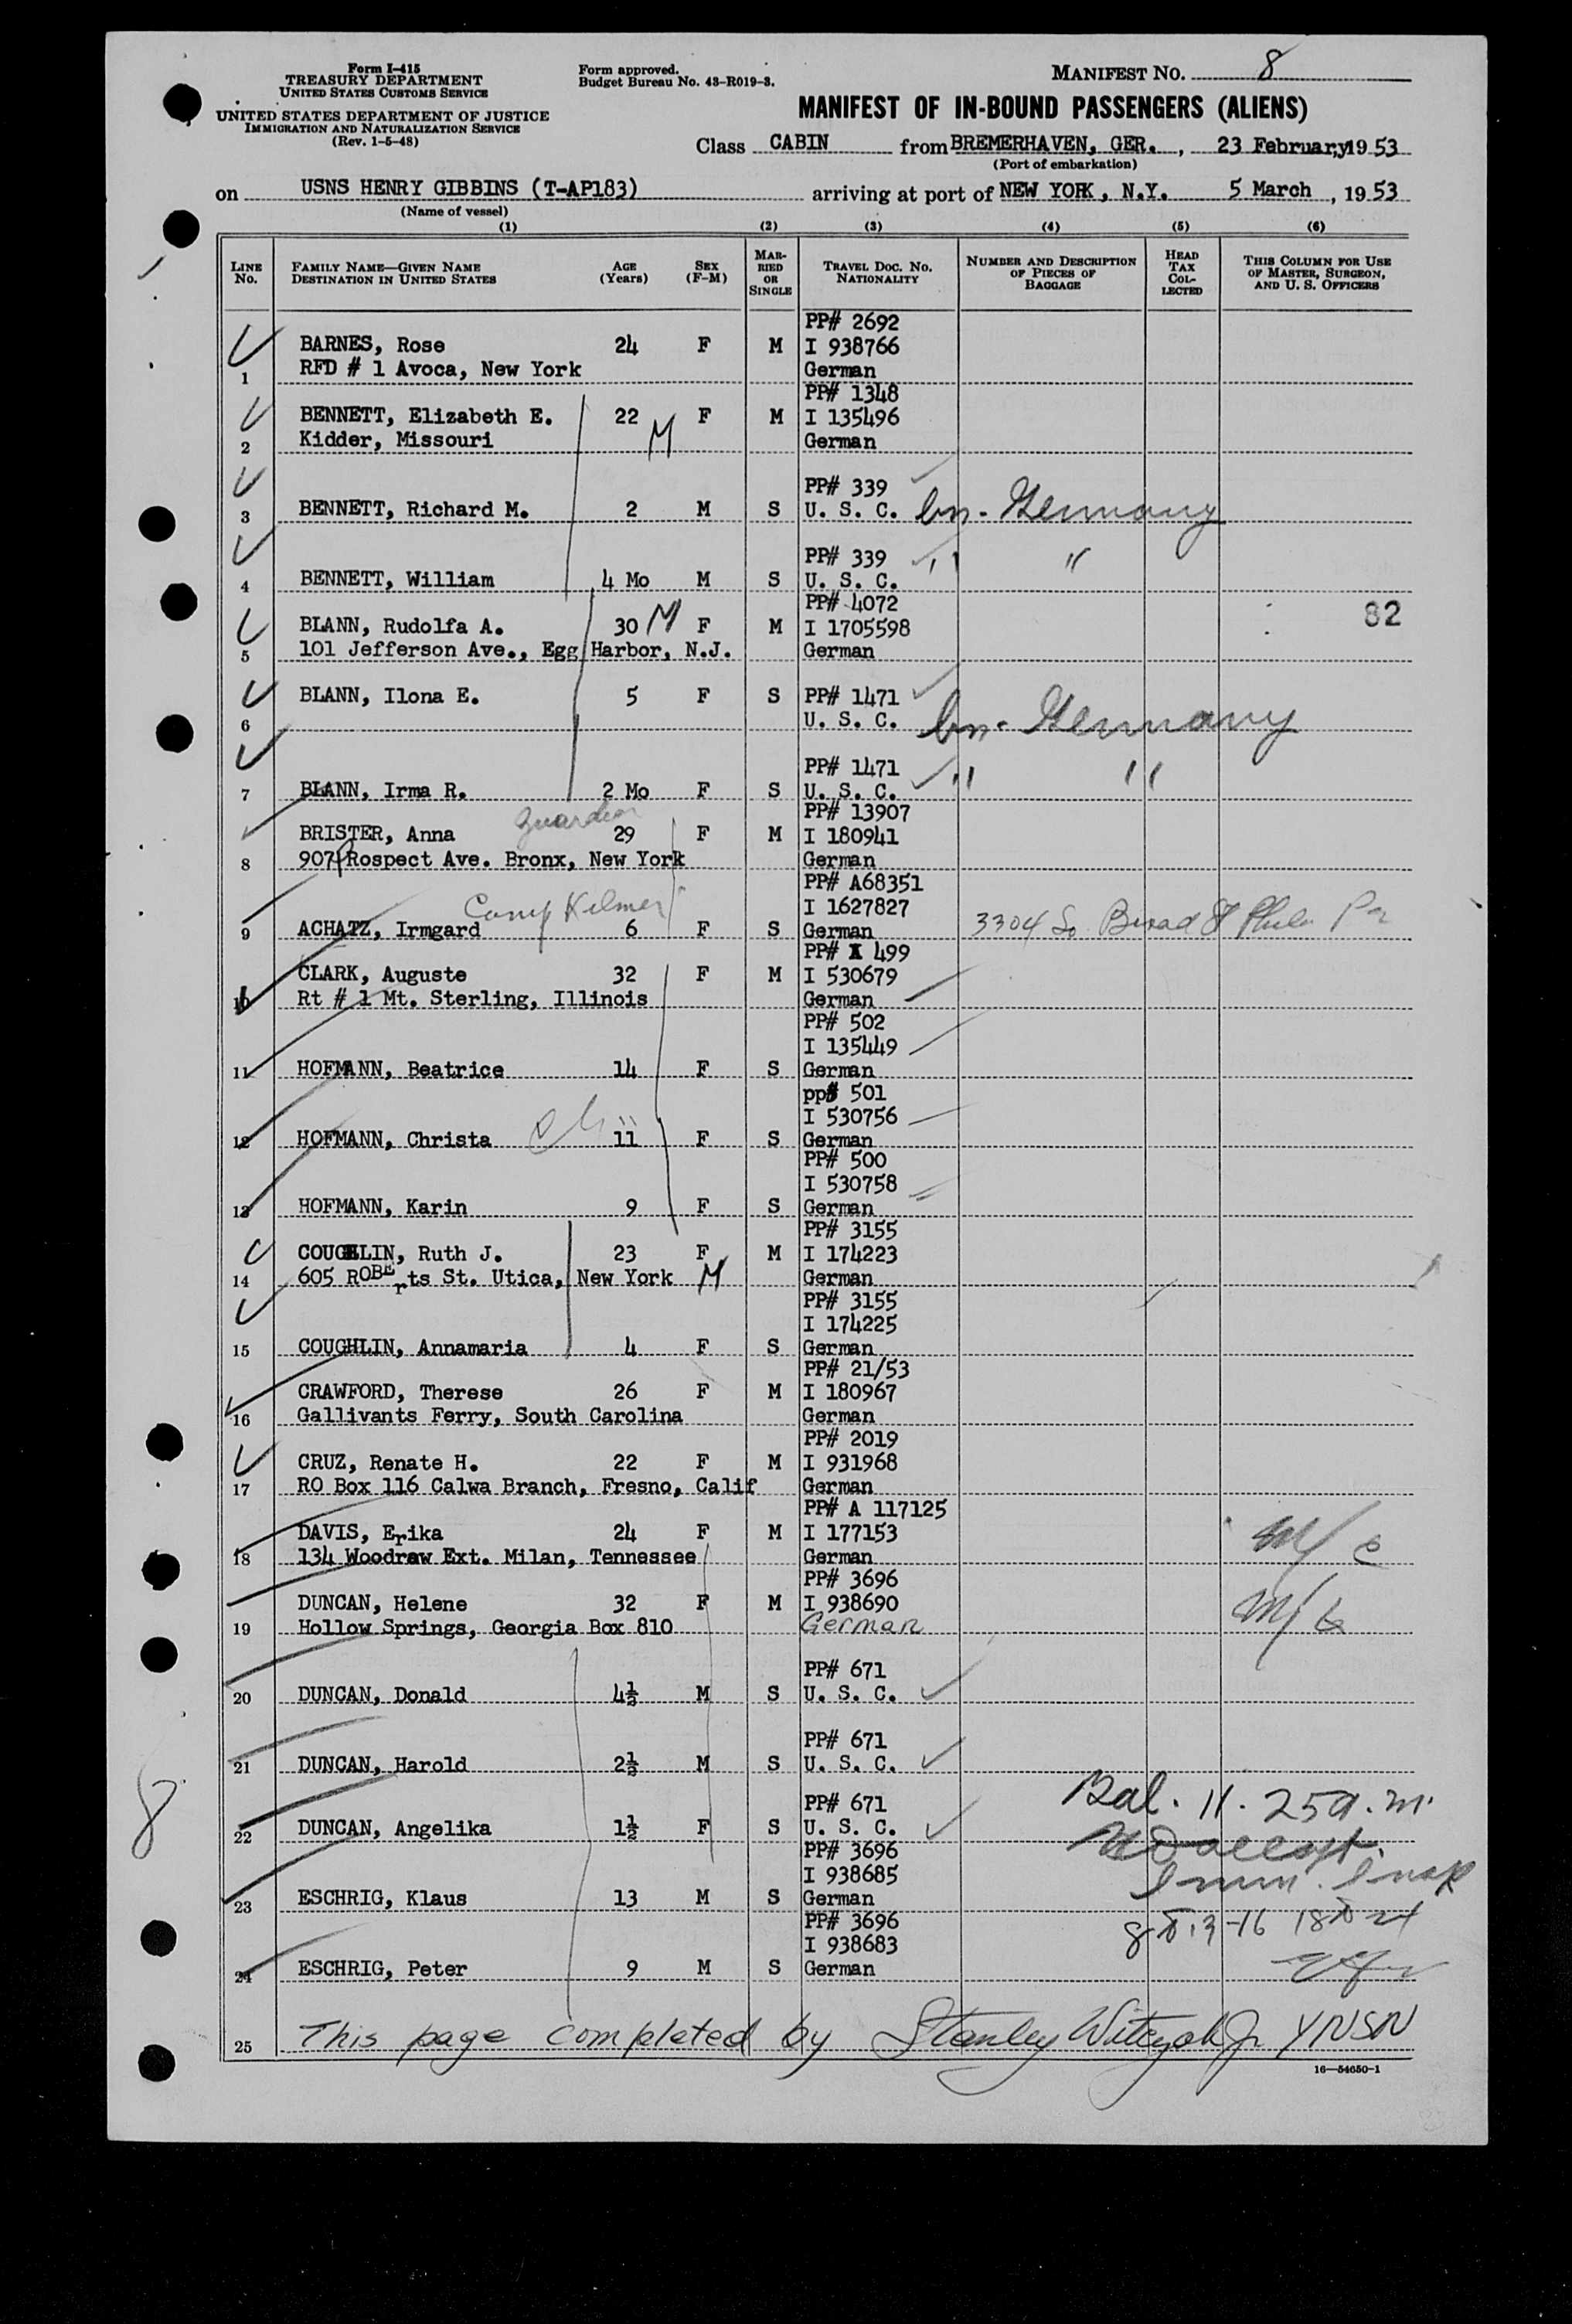 Form I-415
TREASURY DEPARTMENT
UNITED STATES CUSTOMS SERVICE
UNITED STATES DEPARTMENT OF JUSTICE
IMMIGRATION AND NATURALIZATION SERVICE
(Rev. 1-5-48)
Form approved.
Budget Bureau No. 43-R019-3.
MANIFEST NO. 8
MANIFEST OF IN-BOUND PASSENGERS (ALIENS)
Class CABIN from BREMERHAVEN, GER. , 23 February, 1953
(Port of embarkation)
on USNS HENRY GIBBINS (T-AP183) arriving at port of NEW YORK, N.Y. 5 March , 1953
(Name of vessel)
(1) (2) (3) (4) (5) (6)
LINE NO. FAMILY NAME—GIVEN NAME DESTINATION IN UNITED STATES AGE (Years) SEX (F-M) MARRIED OR SINGLE TRAVEL DOC. NO. NATIONALITY NUMBER AND DESCRIPTION OF PIECES OF BAGGAGE HEAD TAX COLLECTED THIS COLUMN FOR USE OF MASTER, SURGEON, AND U. S. OFFICERS
PP# 2692
BARNES, Rose 24 F M I 938766
1 RFD # 1 Avoca, New York German
PP# 1348
BENNETT, Elizabeth E. 22 F M I 135496
2 Kidder, Missouri M German
PP# 339
3 BENNETT, Richard M. 2 M S U. S. C. bn. Germany
PP# 339 " "
4 BENNETT, William 4 Mo M S U. S. C.
PP# 4072 82
BLANN, Rudolfa A. 30 M F M I 1705598
5 101 Jefferson Ave., Egg Harbor, N.J. German
BLANN, Ilona E. 5 F S PP# 1471
6 U. S. C. bn. Germany
PP# 1471 " "
7 BLANN, Irma R. 2 Mo F S U. S. C.
guardian PP# 13907
BRISTER, Anna 29 F M I 180941
8 907 PRospect Ave. Bronx, New York German
PP# A68351
Camp Kilmer I 1627827
9 ACHATZ, Irmgard 6 F S German 3304 So Broad St Phila Pa
PP# X 499
CLARK, Auguste 32 F M I 530679
10 Rt # 1 Mt. Sterling, Illinois German
PP# 502
I 135449
11 HOFMANN, Beatrice 14 F S German
pp# 501
I 530756
12 HOFMANN, Christa 11 F S German
PP# 500
I 530758
13 HOFMANN, Karin 9 F S German
PP# 3155
COUGHLIN, Ruth J. 23 F M I 174223
14 605 ROBErts St. Utica, New York M German
PP# 3155
I 174225
15 COUGHLIN, Annamaria 4 F S German
PP# 21/53
CRAWFORD, Therese 26 F M I 180967
16 Gallivants Ferry, South Carolina German
PP# 2019
CRUZ, Renate H. 22 F M I 931968
17 RO Box 116 Calwa Branch, Fresno, Calif German
PP# A 117125
DAVIS, Erika 24 F M I 177153
18 134 Woodraw Ext. Milan, Tennessee German
PP# 3696
DUNCAN, Helene 32 F M I 938690
19 Hollow Springs, Georgia Box 810 German
PP# 671
20 DUNCAN, Donald 4½ M S U. S. C.
PP# 671
21 DUNCAN, Harold 2½ M S U. S. C.
8 PP# 671 Bal. 11.25 a.m.
22 DUNCAN, Angelika 1½ F S U. S. C.
PP# 3696
I 938685 Imm. Insp
23 ESCHRIG, Klaus 13 M S German
PP# 3696
I 938683
24 ESCHRIG, Peter 9 M S German
25 This page completed by Stanley Jr YNSN
16—54650-1